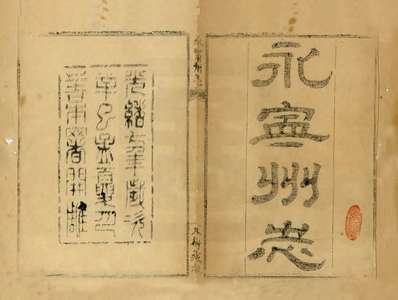 永寧州志
永寧州志
光緒七年歲次
辛巳孟夏
本署開雕